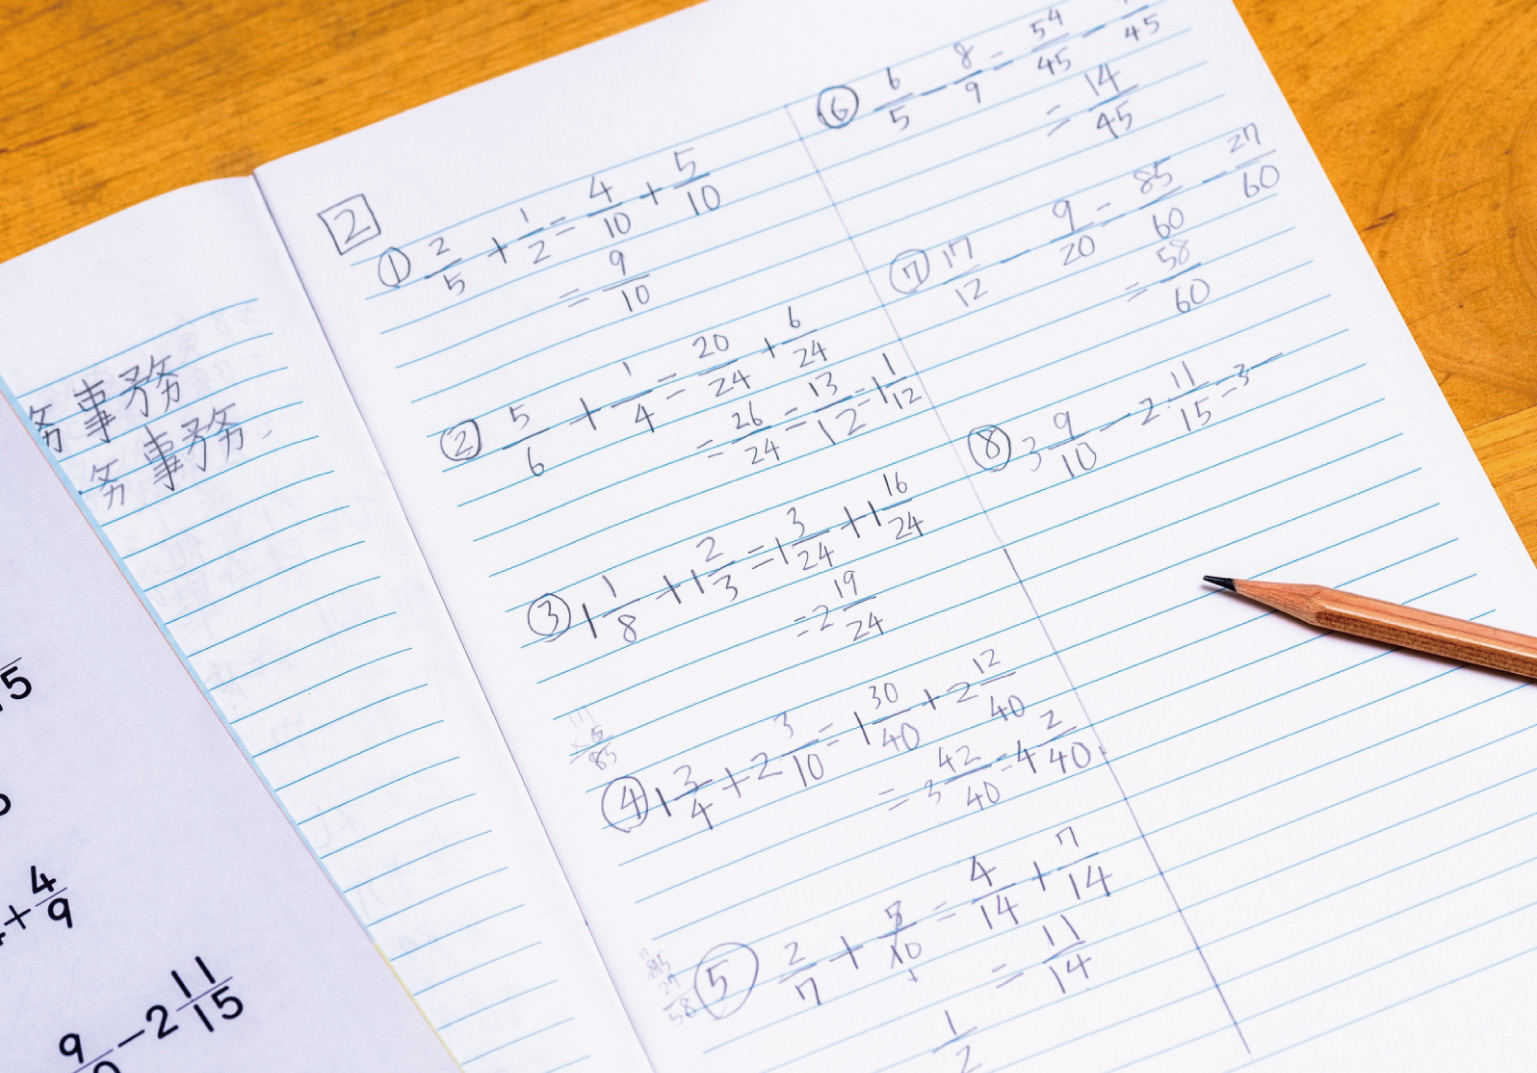 務事務
務事務
15
+4/9
9/ −2 11/15
2
① 2/5 + 1/2 = 4/10 + 5/10
= 9/10
② 5/6 + 1/4 = 20/24 + 6/24
= 26/24 = 13/12 = 1 1/12
③ 1 1/8 + 1 2/3 = 1 3/24 + 1 16/24
= 2 19/24
④ 1 3/4 + 2 3/10 = 1 30/40 + 2 12/40
= 3 42/40 = 4 2/40
⑤ 2/7 + 5/10 = 4/14 + 7/14
= 11/14
1/2
⑥ 6/5 − 8/9 = 54/45 − /45
= 14/45
⑦ 17/12 − 9/20 = 85/60 − 27/60
= 58/60
⑧ 3 9/10 − 2 11/15 = 3